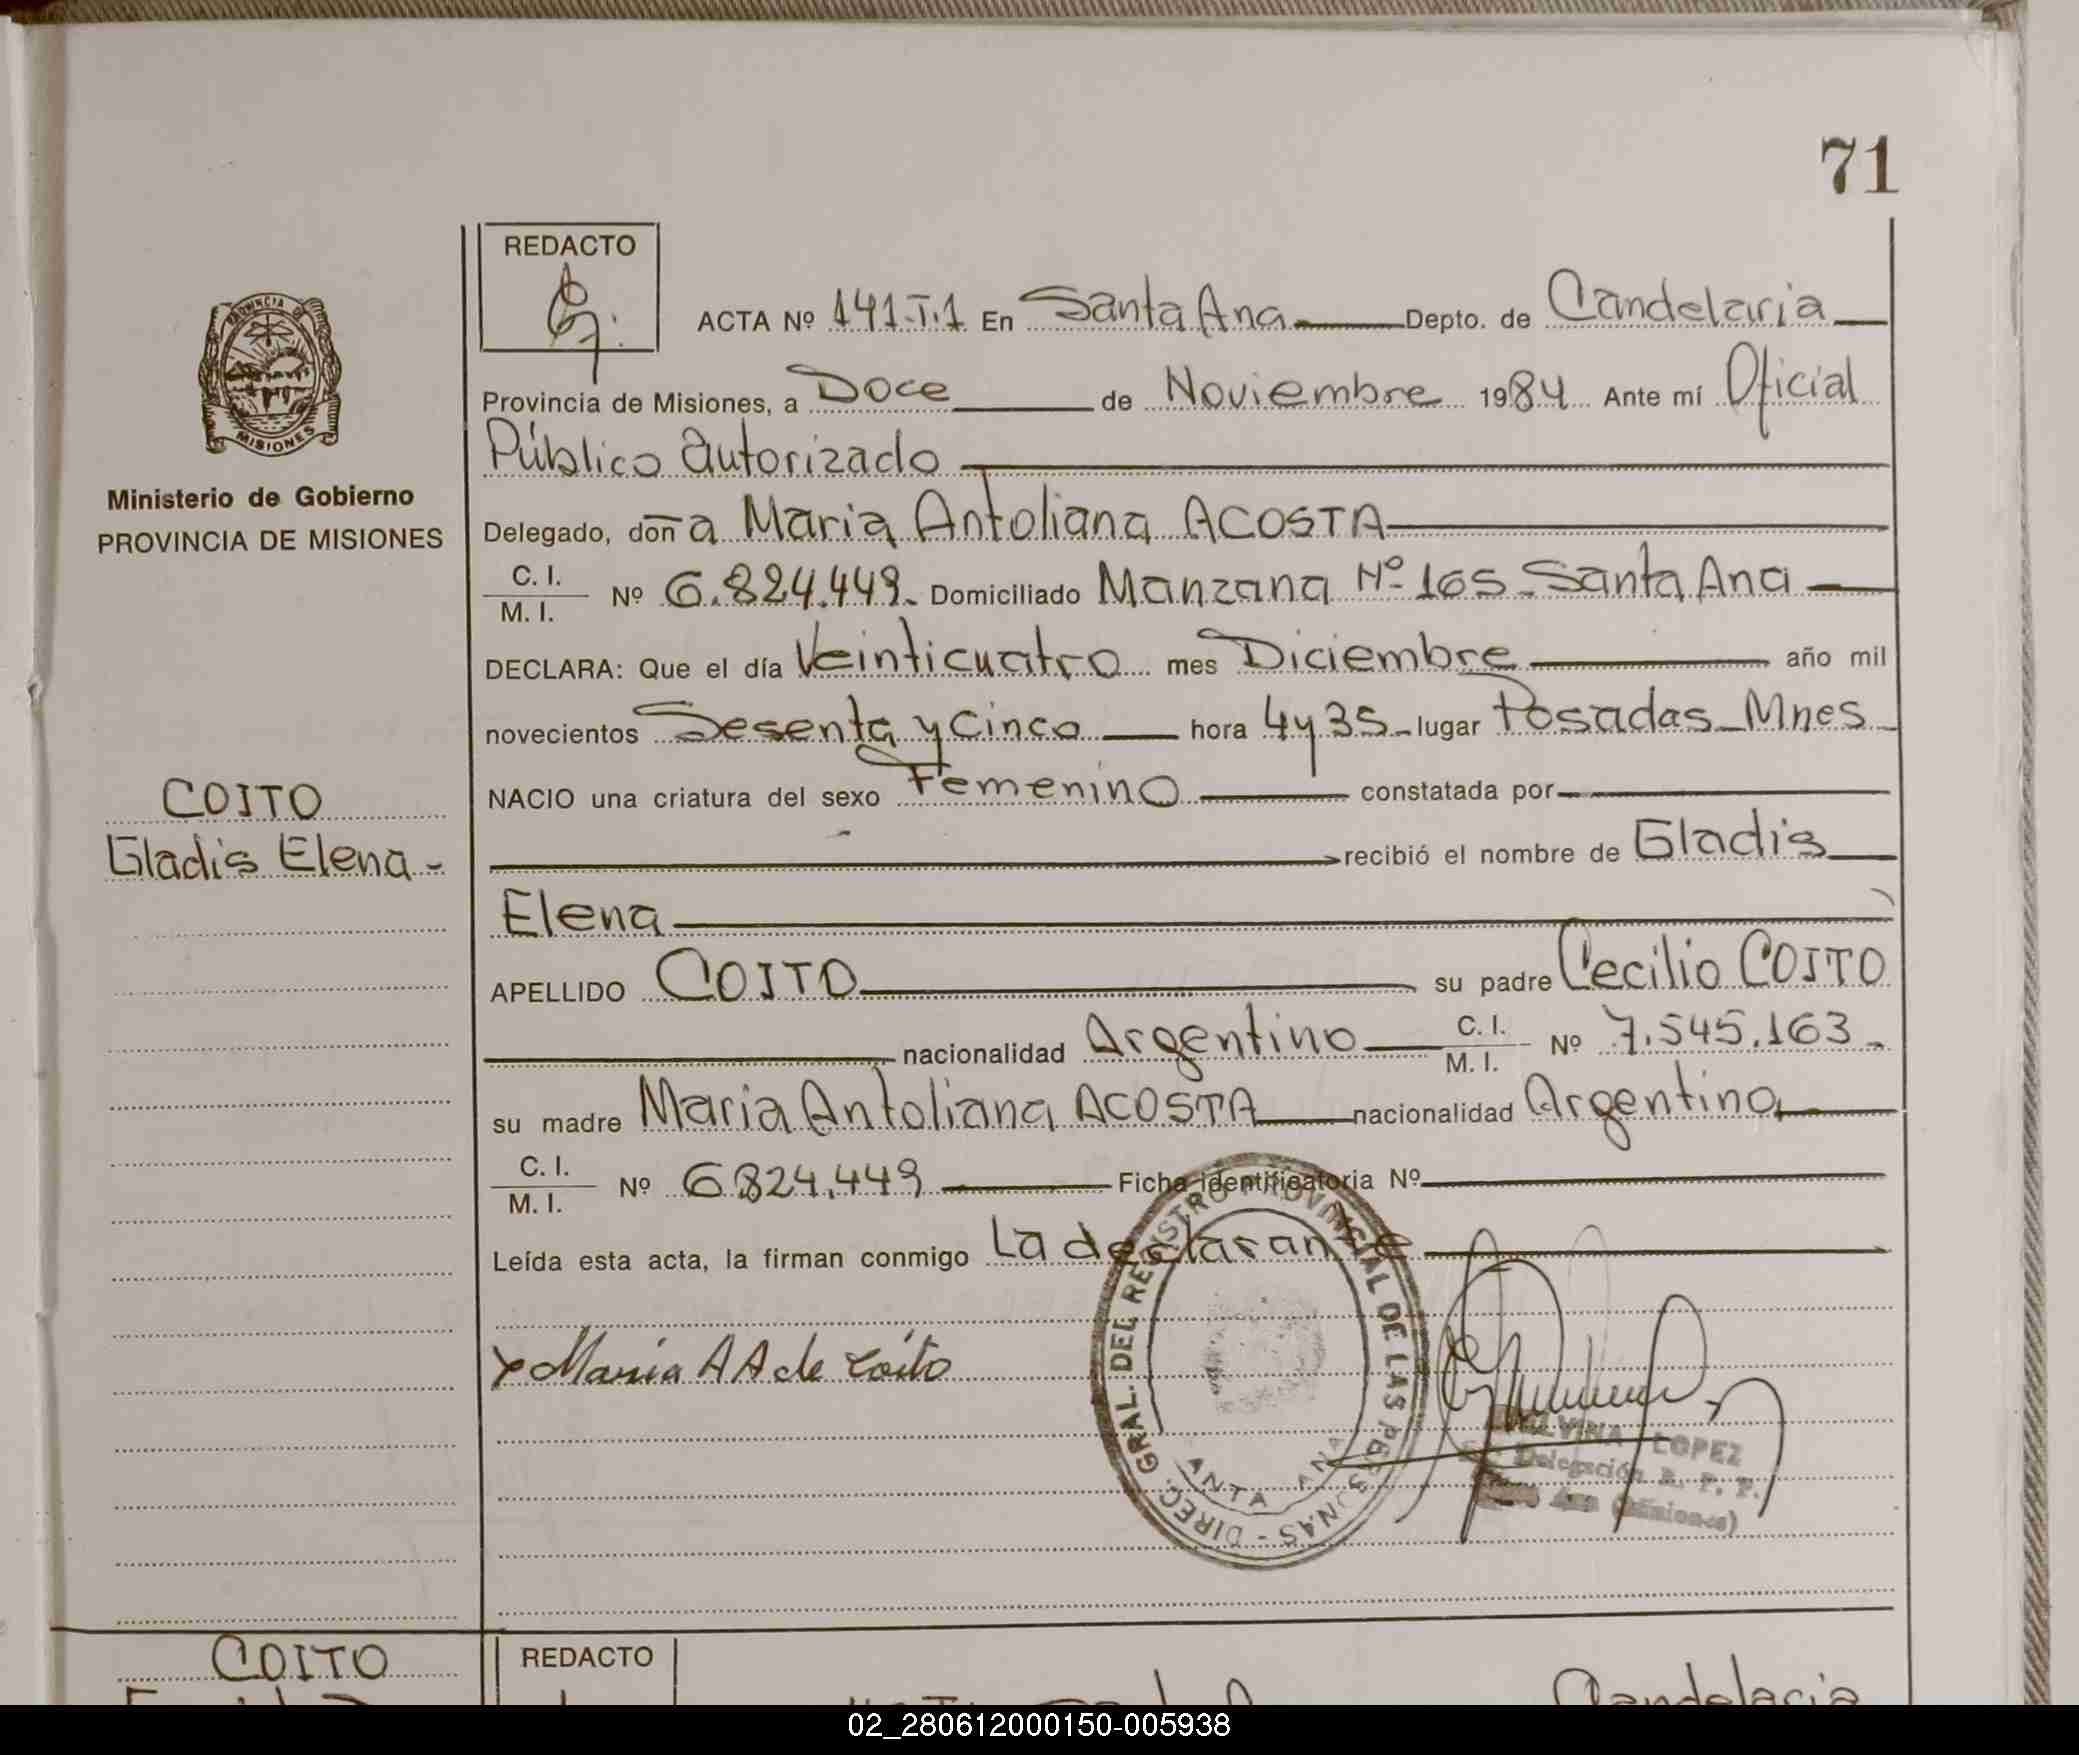 71
REDACTO
ACTA Nº 141-T.1 En Santa Ana Depto. de Candelaria
Provincia de Misiones, a Doce de Noviembre 1984 Ante mí Oficial
Público autorizado
Delegado, don̄ a Maria Antoliana ACOSTA
C. I.
M. I. Nº 6.824.449. Domiciliado Manzana Nº 165 - Santa Ana
DECLARA: Que el día Veinticuatro mes Diciembre año mil
novecientos Sesenta y Cinco hora 4 y 35 - lugar Posadas - Mnes
NACIO una criatura del sexo Femenino constatada por
recibió el nombre de Gladis
Elena
APELLIDO COITO su padre Cecilio COITO
nacionalidad Argentino C. I.
M. I. Nº 7.545.163.
su madre Maria Antoliana ACOSTA nacionalidad Argentina
C. I.
M. I. Nº 6824.449 Ficha identificatoria Nº
Leída esta acta, la firman conmigo La declarante
x Maria A A de Coito
PROVINCIA DE
MISIONES
Ministerio de Gobierno
PROVINCIA DE MISIONES
COITO
Gladis Elena -
DIREC. GRAL. DEL REGISTRO PROVINCIAL DE LAS PERSONAS -
SANTA ANA
LOPEZ
Delegación R. P. P.
Ana (Misiones)
COITO
REDACTO
Candelaria
02_280612000150-005938